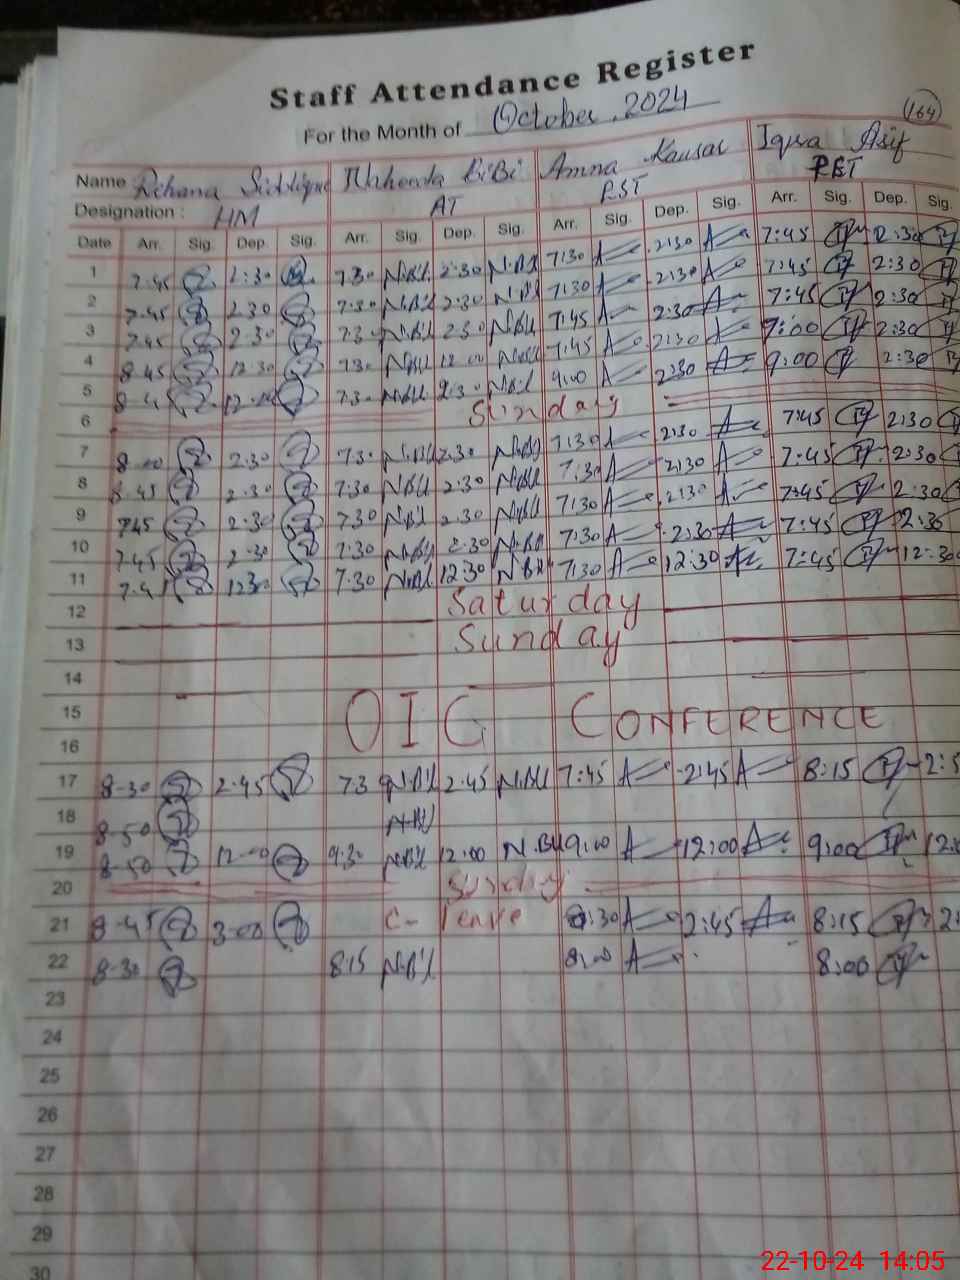 Staff Attendance Register
For the Month of October, 2024
164
Name Rehana Siddique BiBi Amna Kausar Iqra Asif
Designation : HM AT EST PET
Date Arr. Sig. Dep. Sig. Arr. Sig. Dep. Sig. Arr. Sig. Dep. Sig. Arr. Sig. Dep. Sig.
1 7.45 2:30 7.30 N.Bi 2:30 N.Bi 7:30 A 2:30 A 7:45 2:30
2 7.45 2.30 7:30 N.Bi 2:30 N.Bi 7:30 A 2:30 A 7:45 2:30
3 7.45 2.30 7.3 N.Bi 2:30 N.Bi 7:45 A 2:30 A 7:45 2:30
4 8.45 12.30 7.3 N.Bi 12.00 7:45 A 2:30 A 7:00 2:30
5 7.3 N.Bi N.Bi 9:00 A 2:30 A 9:00 2:30
6 Sunday
7 2.30 7.30 N.Bi 2.30 N.Bi 7:30 A 2:30 A 7:45 2:30
8 8.45 2.30 7.30 N.Bi 2.30 N.Bi 7:30 A 2:30 A 7:45 2:30
9 7.45 2.30 7.30 N.Bi 2.30 N.Bi 7:30 A 2:30 A 7:45 2:30
10 7.45 2.30 7.30 N.Bi 2.30 N.Bi 7:30 A 2:30 A 7:45 2:30
11 12.30 7.30 N.Bi 12:30 N.Bi 7:30 A 12:30 A 7:45 12:30
12 Saturday
13 Sunday
14
15 OIC CONFERENCE
16
17 8-30 2.45 7.3 N.Bi 2.45 N.Bi 7:45 A 2:45 A 8:15
18 8-50 N.Bi
19 8-50 12-00 9.30 N.Bi 12:00 N.Bi 9:00 A 12:00 A 9:00
20 Sunday
21 8-45 3-00 C- leave 8:30 A 2:45 A 8:15
22 8-30 8.15 N.Bi 8:00 A 8:00
23
24
25
26
27
28
29
30
22-10-24 14:05